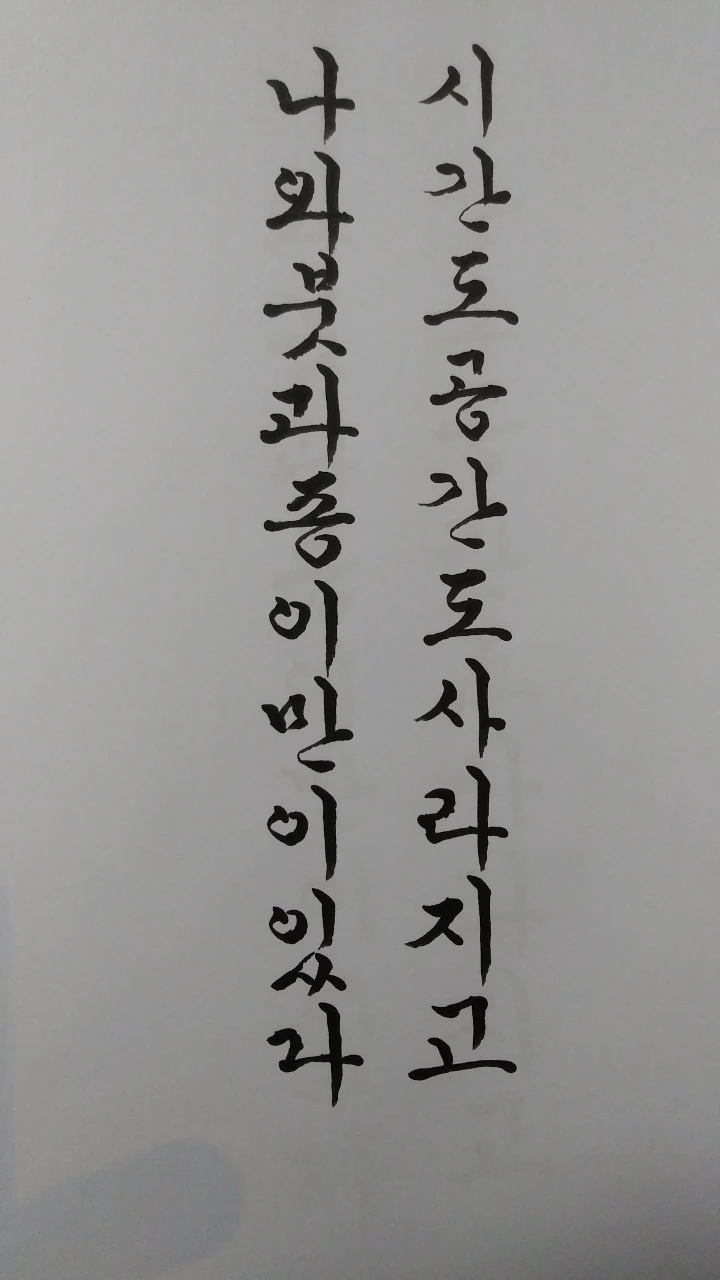 시간도공간도사라지고
나와붓과종이만이있라